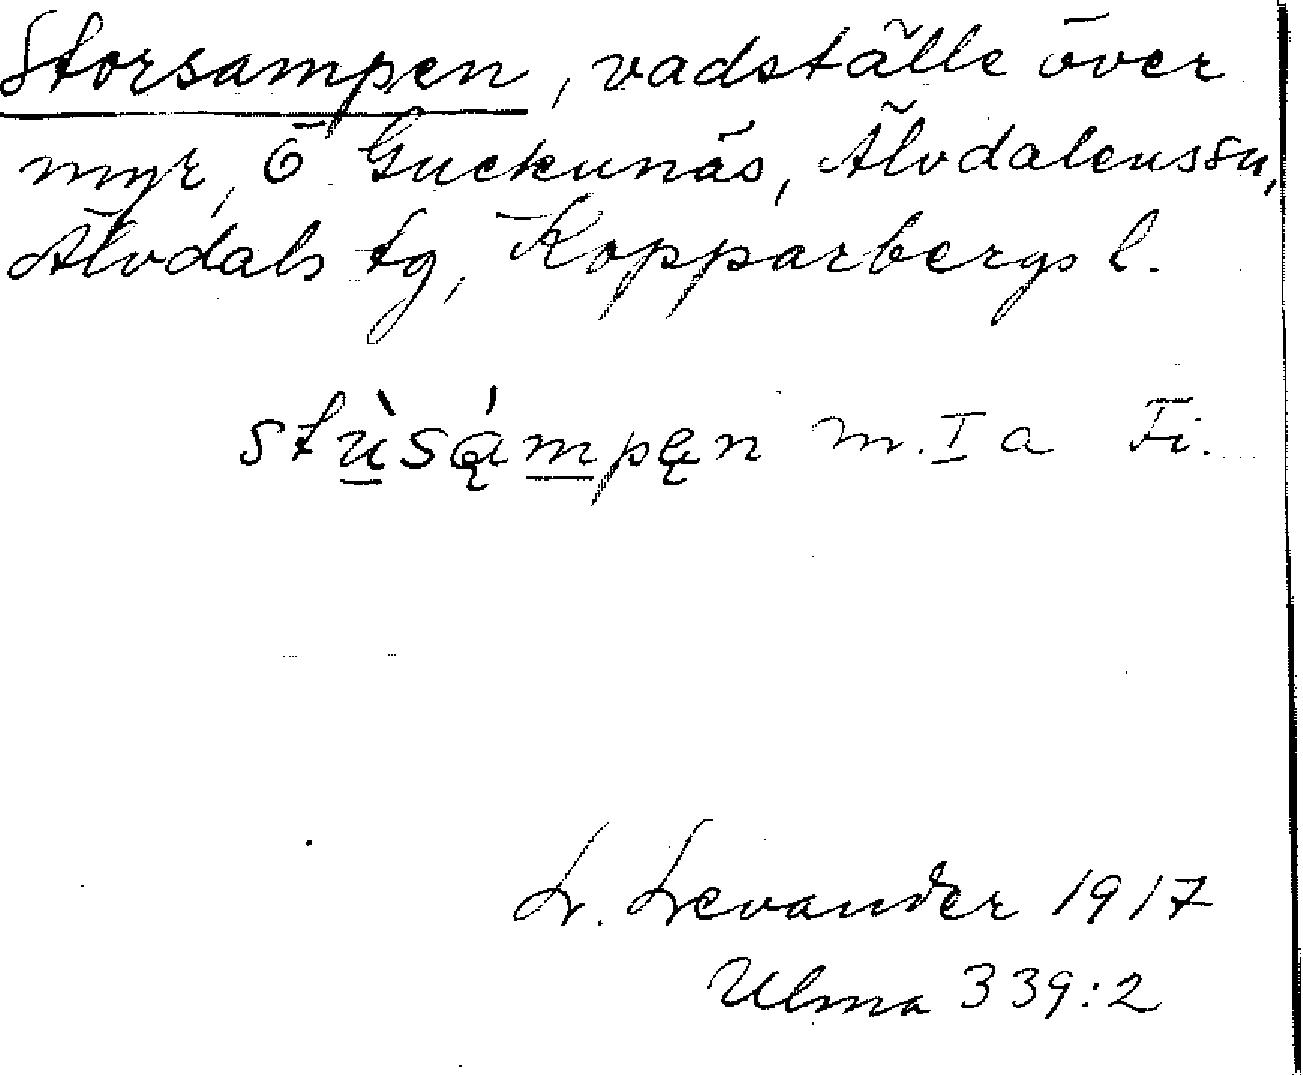 Storsampen, vadställe över
myr, Ö Guckunäs, Älvdalens sn,
Älvdals tg, Kopparbergs l.
stù̠są́m̠pęn m. I a Fi.
L. Levander 1917
Ulma 339:2